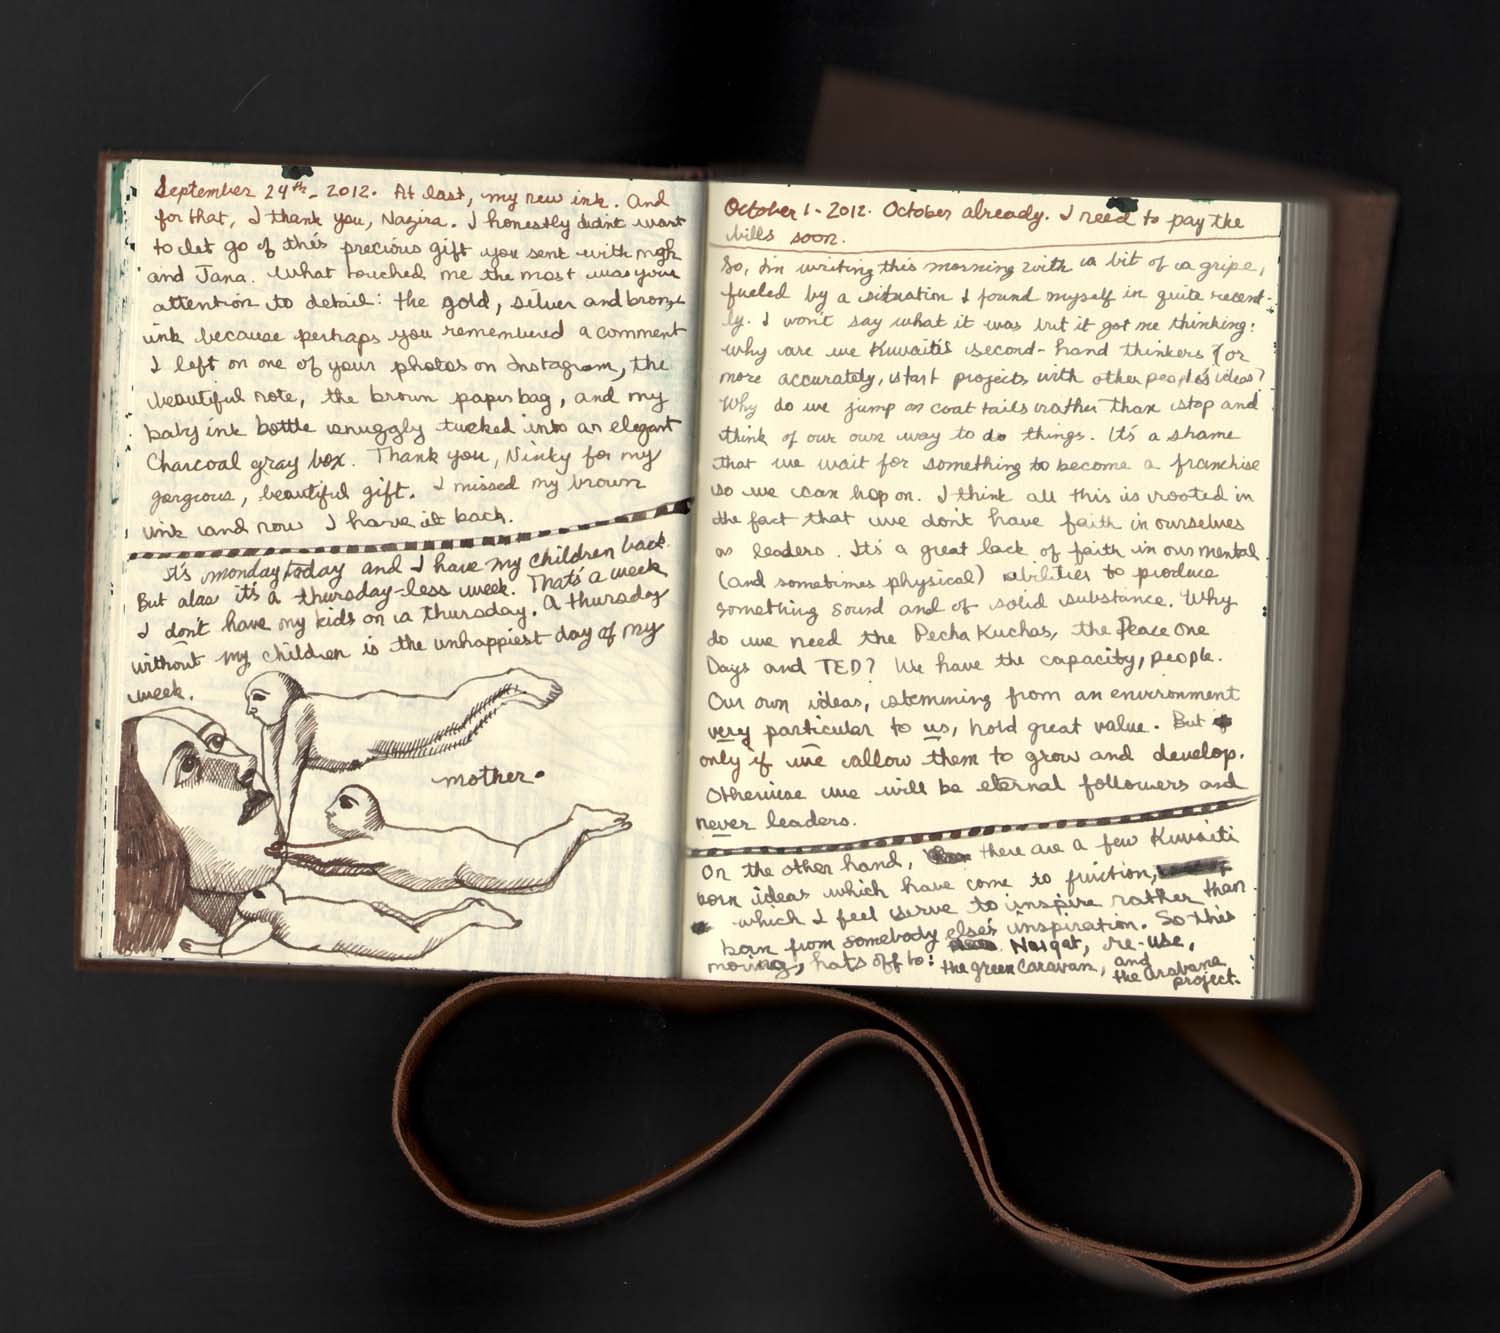 September 24th - 2012. At last, my new ink. And
for that, I thank you, Nazira. I honestly didn't want
to let go of this precious gift you sent with
and Jana. What touched me the most was your
attention to detail: the gold, silver and bronze
ink because perhaps you remembered a comment
I left on one of your photos on Instagram, the
beautiful note, the brown paper bag, and my
baby ink bottle snuggly tucked into an elegant
Charcoal gray box. Thank you, Ninky for my
gorgeous, beautiful gift. I missed my brown
ink and now I have it back.
It's monday today and I have my children back.
But alas it's a thursday-less week. That's a week
I don't have my kids on a thursday. A thursday
without my children is the unhappiest day of my
week.
mother.
October 1 - 2012. October already. I need to pay the
bills soon.
So, I'm writing this morning with a bit of a gripe,
fueled by a situation I found myself in quite recent-
ly. I won't say what it was but it got me thinking:
why are we Kuwaitis second-hand thinkers (or
more accurately, start projects with other people's ideas?
Why do we jump on coat tails rather than stop and
think of our own way to do things. It's a shame
that we wait for something to become a franchise
so we can hop on. I think all this is rooted in
the fact that we don't have faith in ourselves
as leaders. It's a great lack of faith in our mental
(and sometimes physical) abilities to produce
something sound and of solid substance. Why
do we need the Pecha Kuchas, the Peace One
Days and TED? We have the capacity, people.
Our own ideas, stemming from an environment
very particular to us, hold great value. But
only if we allow them to grow and develop.
Otherwise we will be eternal followers and
never leaders.
On the other hand, there are a few Kuwaiti
born ideas which have come to fruition,
which I feel serve to inspire rather than
born from somebody else's inspiration. So this
morning, hats off to: Nuqat, re-use,
the green Caravan, and
the Arabana
project.